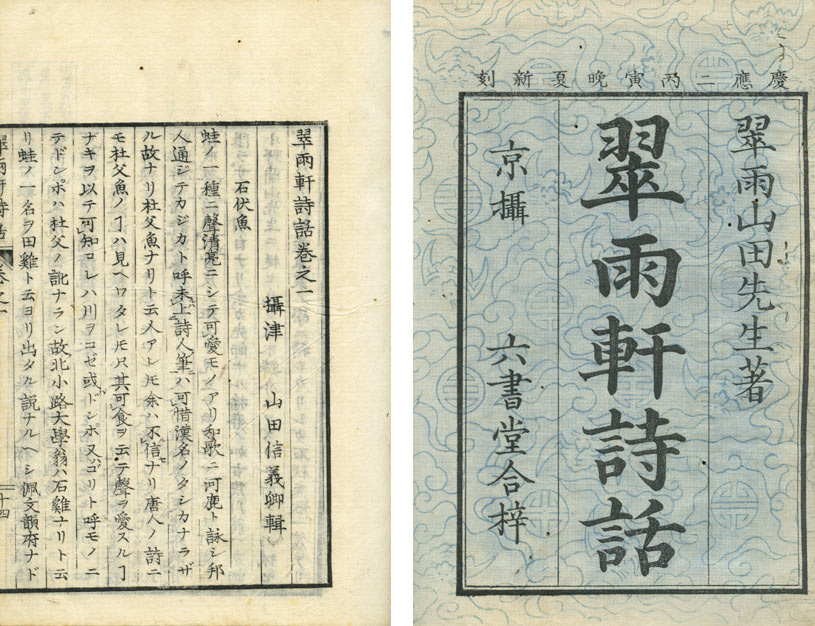 慶應二丙寅晩夏新刻
翠雨山田先生著
翠雨軒詩話
京攝　六書堂合梓
翠雨軒詩話卷之一
攝津　山田信義卿輯
石伏魚
蛙ノ一種ニ聲清亮ニシテ可愛モノアリ和歌ニ河鹿ト詠シ邦
人通シテカジカト呼未上詩人筆ハ可惜漢名ノタシカナラザ
ル故ナリ杜父魚ナリト云人アレ𪜈余ハ不信ナリ唐人ノ詩ニ
モ杜父魚ノヿハ見ヘワタレ𪜈只其可食ヲ云テ聲ヲ愛スルヿ
ナキヲ以テ可知コレハ川ヲコゼ或ドンポ又ゴリト呼モノニ
テドンポハ杜父ノ訛ナラン故北小路大學翁ハ石雞ナリト云
リ蛙ノ一名ヲ田雞ト云ヨリ出タル説ナルヘシ佩文韻府ナド
翠雨軒詩話　卷之一　十四